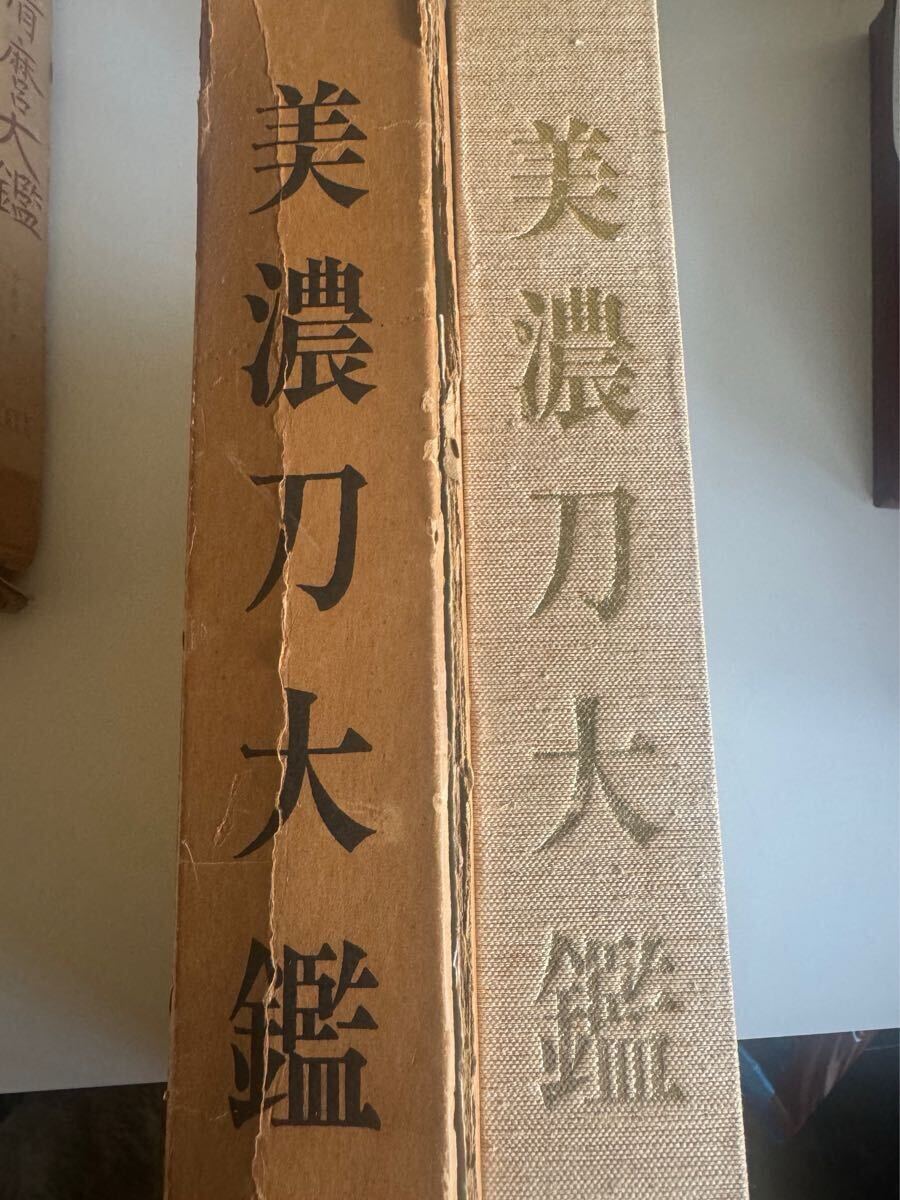 美濃刀大鑑
美濃刀大鑑
清麿大鑑